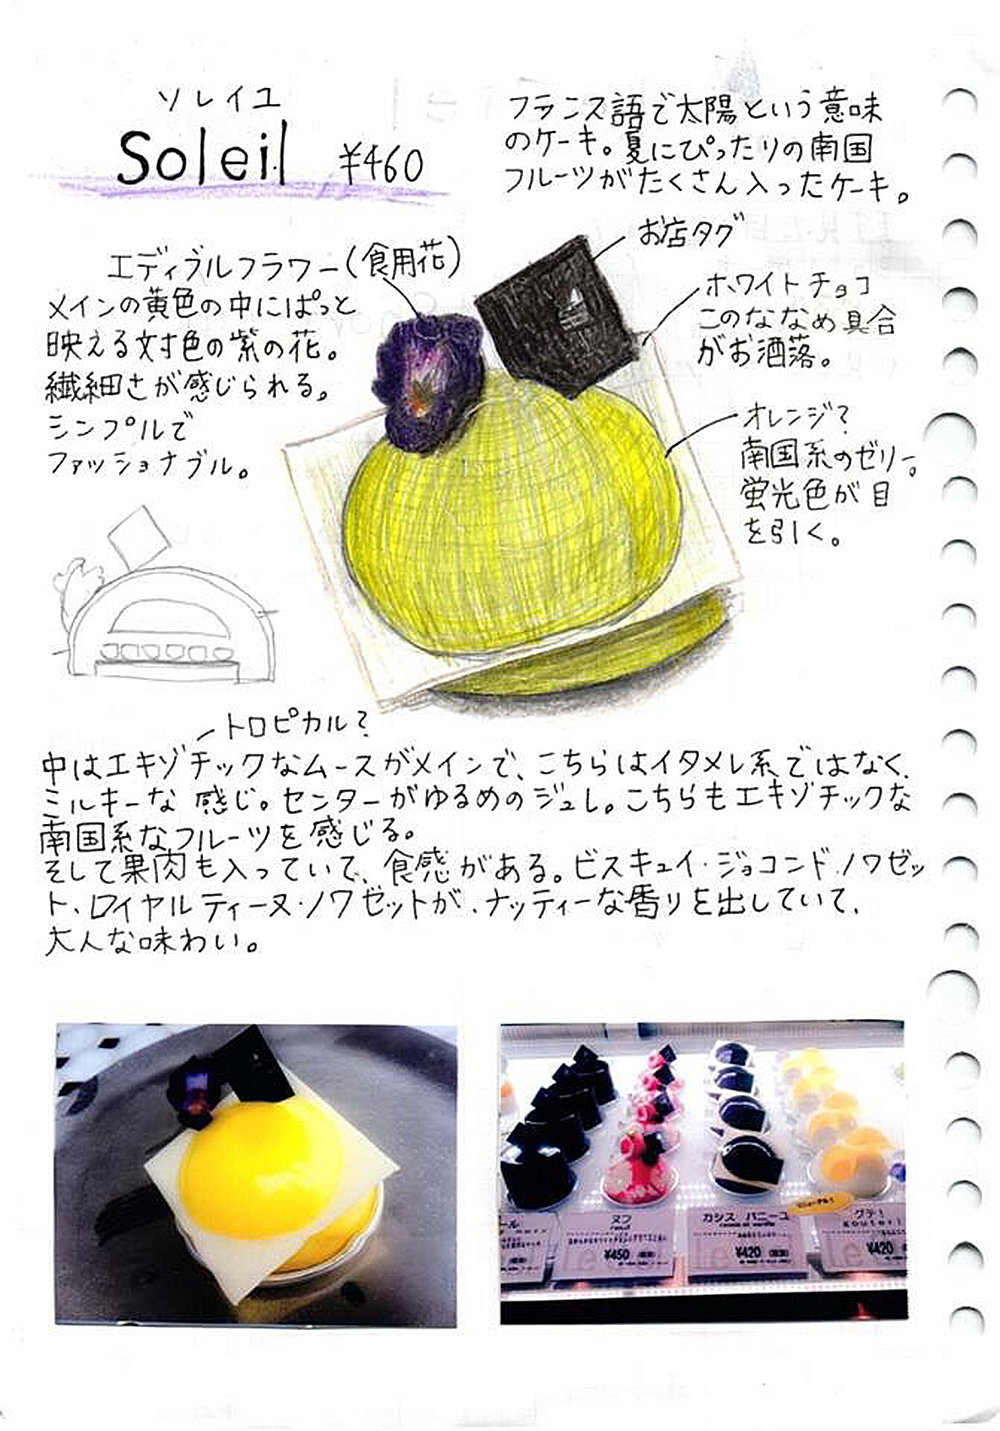 ソレイユ
Soleil ¥460
フランス語で太陽という意味
のケーキ。夏にぴったりの南国
フルーツがたくさん入ったケーキ。
お店タグ
エディブルフラワー(食用花)
メインの黄色の中にぱっと
映える対色の紫の花。
繊細さが感じられる。
シンプルで
ファッショナブル。
ホワイトチョコ
このななめ具合
がお洒落。
オレンジ?
南国系のゼリー。
蛍光色が目
を引く。
トロピカル?
中はエキゾチックなムースがメインで、こちらはイタメレ系ではなく、
ミルキーな感じ。センターがゆるめのジュレ。こちらもエキゾチックな
南国系なフルーツを感じる。
そして果肉も入っていて、食感がある。ビスキュイ・ジョコンドノワゼッ
ト、ロイヤルティーヌ・ノワゼットが、ナッティーな香りを出していて、
大人な味わい。
ヌフ
¥450
カシス バニーユ
¥420
グテ!
¥420